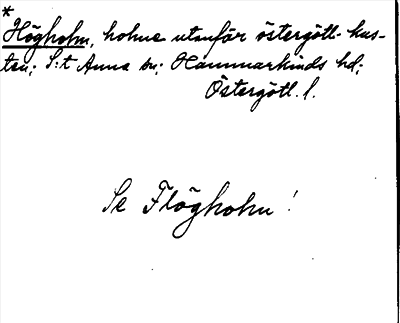 *
Högholm, holme utanför östergötl. kus-
ten; S:t Anna sn; Hammarkinds hd;
Östergötl. l.
Se Flögholm!